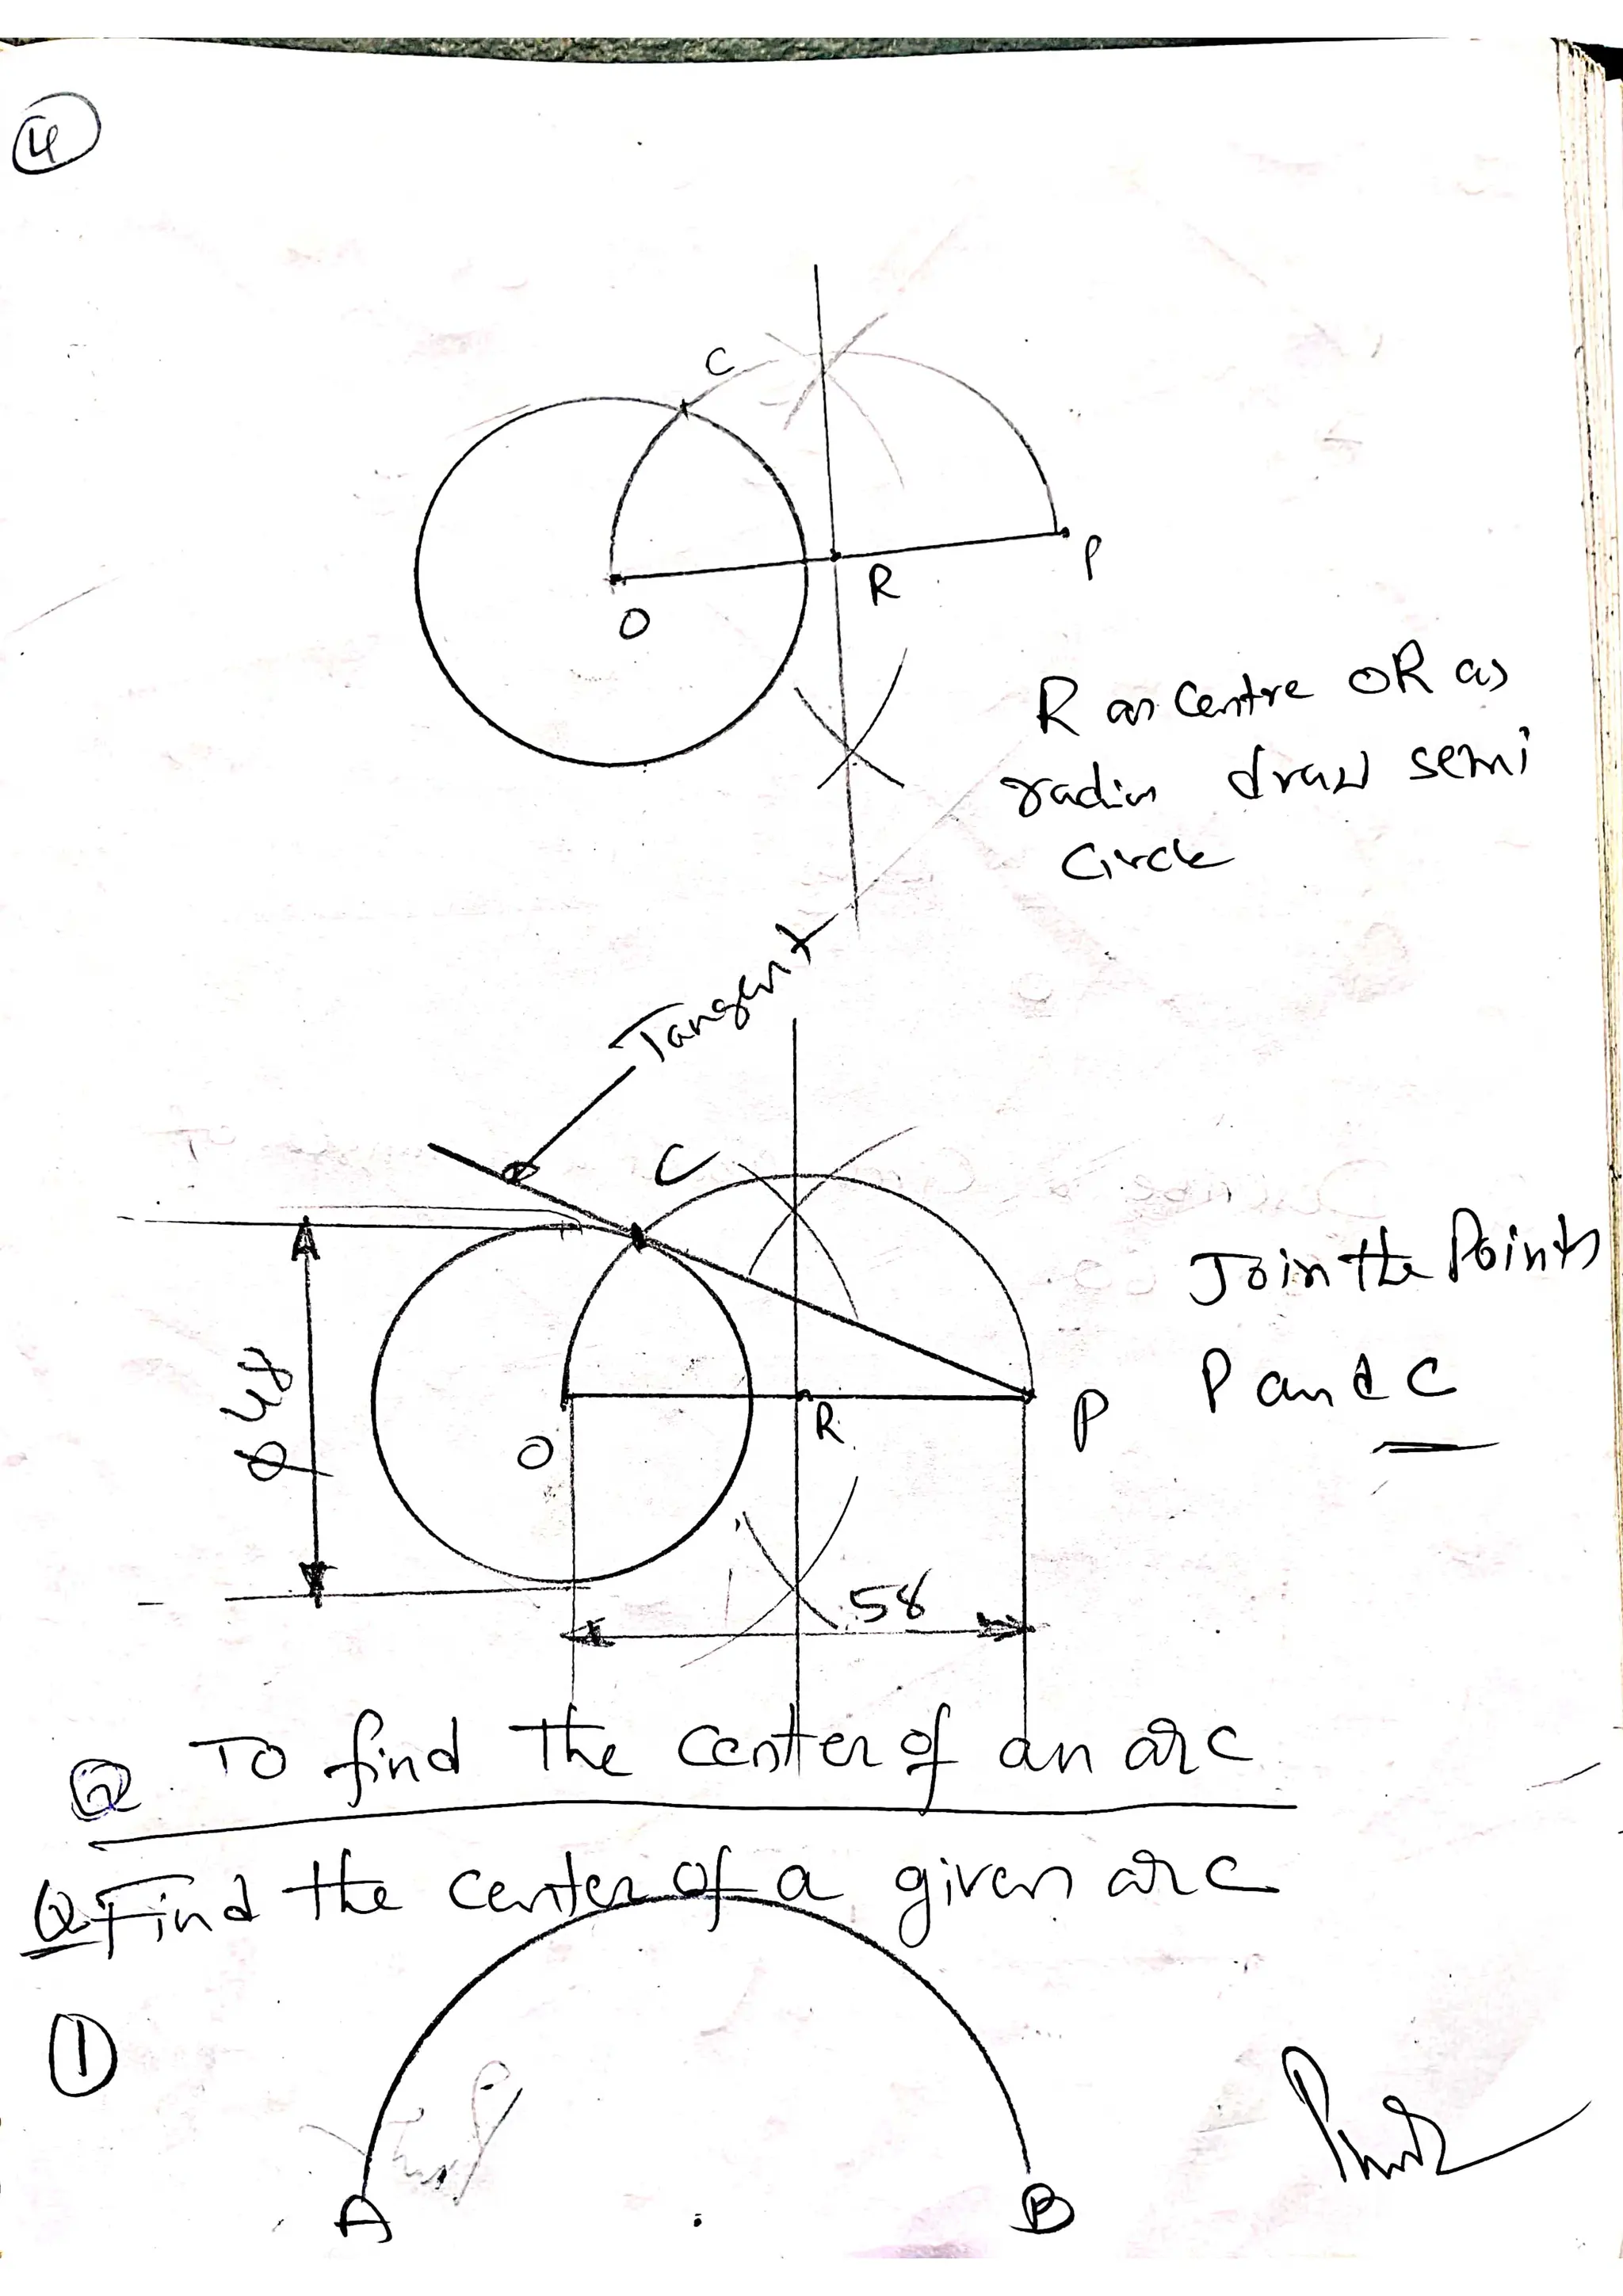 4
C
O
R
P
R as Centre OR as
radius draw semi
Circle
Tangent
C
Join the Points
P and C
φ 48
O
R
P
58
Q To find the center of an arc
Q Find the center of a given arc
1
A
B